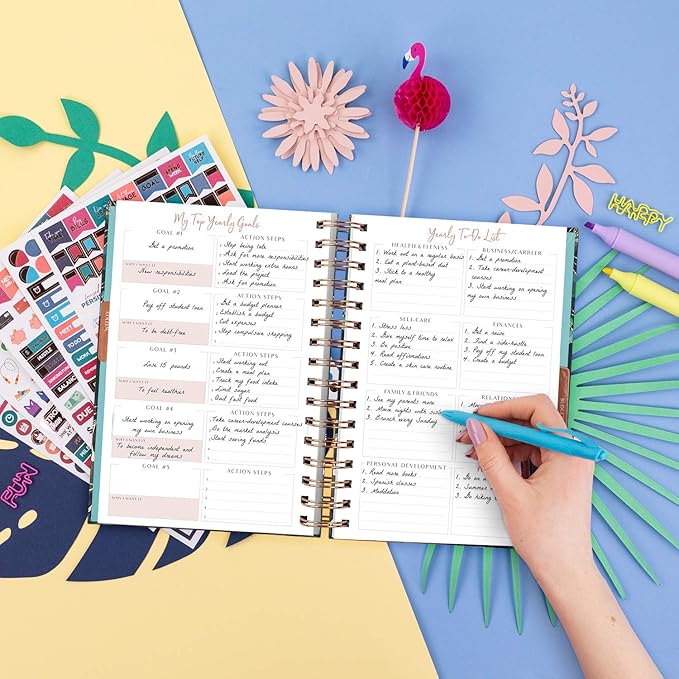 My Top Yearly Goals
GOAL #1
Get a promotion
WHY I WANT IT
New responsibilities
ACTION STEPS
Stop being late
Ask for more responsibilities
Start working extra hours
Lead the project
Ask for promotion
GOAL #2
Pay off student loan
WHY I WANT IT
To be debt-free
ACTION STEPS
Get a budget planner
Establish a budget
Cut expenses
Stop compulsive shopping
GOAL #3
Lose 15 pounds
WHY I WANT IT
To feel healthier
ACTION STEPS
Start working out
Create a meal plan
Track my food intake
Limit sugar
Quit fast food
GOAL #4
Start working on opening
my own business
WHY I WANT IT
To become independent and
follow my dreams
ACTION STEPS
Take career-development courses
Do the market analysis
Start saving funds
GOAL #5
WHY I WANT IT
ACTION STEPS
Yearly To-Do List
HEALTH & FITNESS
1. Work out on a regular basis
2. Eat a plant-based diet
3. Stick to a healthy
meal plan
BUSINESS/CARREER
1. Get a promotion
2. Take career-development
courses
3. Start working on opening
my own business
SELF-CARE
1. Stress less
2. Give myself time to relax
3. Be positive
4. Read affirmations
5. Create a skin care routine
FINANCES
1. Get a raise
2. Find a side-hustle
3. Pay off my student loan
4. Create a budget
FAMILY & FRIENDS
1. See my parents more
2. Movie nights with
3. Brunch every Sunday
PERSONAL DEVELOPMENT
1. Read more books
2. Spanish classes
3. Meditation
HAPPY
FUN
GOAL
FUTURE
SELF
WORK
MEETING
TO DO
HUSTLE
BALANCE
DUE